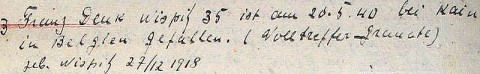 3 Franz Denk Nispiß 35 ist am 20.5.40 bei Kain
in Belgien gefallen. (Volltreffer-Granate)
geb. Nispiß 27/12 1918